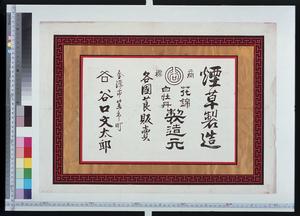 煙草製造
商標
花錦
白牡丹
製造元
各國莨販賣
金澤市
町
谷 谷口文太郎